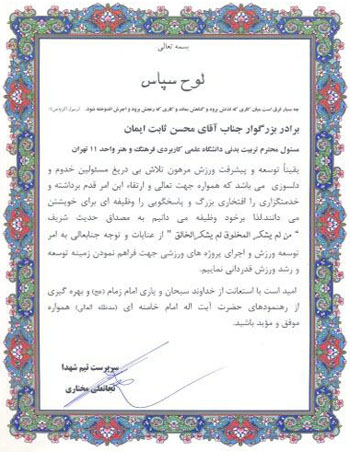 بسمه تعالی
لوح سپاس
چه بسیار فرق است میان کاری که لذتش برود و گناهش بماند و کاری که رنجش برود و اجرش اندوخته شود.
برادر بزرگوار جناب آقای محسن ثابت ایمان
مسئول محترم تربیت بدنی دانشگاه علمی کاربردی فرهنگ و هنر واحد ۱۱ تهران
یقیناً توسعه و پیشرفت ورزش مرهون تلاش بی دریغ مسئولین خدوم و
دلسوزی می باشد که همواره جهت تعالی و ارتقاء این امر قدم برداشته و
خدمتگزاری را افتخاری بزرگ و پاسخگویی را وظیفه ای برای خویشتن
می دانند.لذا برخود وظیفه می دانیم به مصداق حدیث شریف
" من لم یشکر المخلوق لم یشکر الخالق " از عنایات و توجه جنابعالی به امر
توسعه ورزش و اجرای پروژه های ورزشی جهت فراهم نمودن زمینه توسعه
و رشد ورزش قدردانی نماییم.
امید است با استعانت از خداوند سبحان و یاری امام زمام (عج) و بهره گیری
از رهنمودهای حضرت آیت اله امام خامنه ای (مدظله العالی) همواره
موفق و مؤید باشید.
سرپرست تیم شهدا
نجاتعلی مختاری